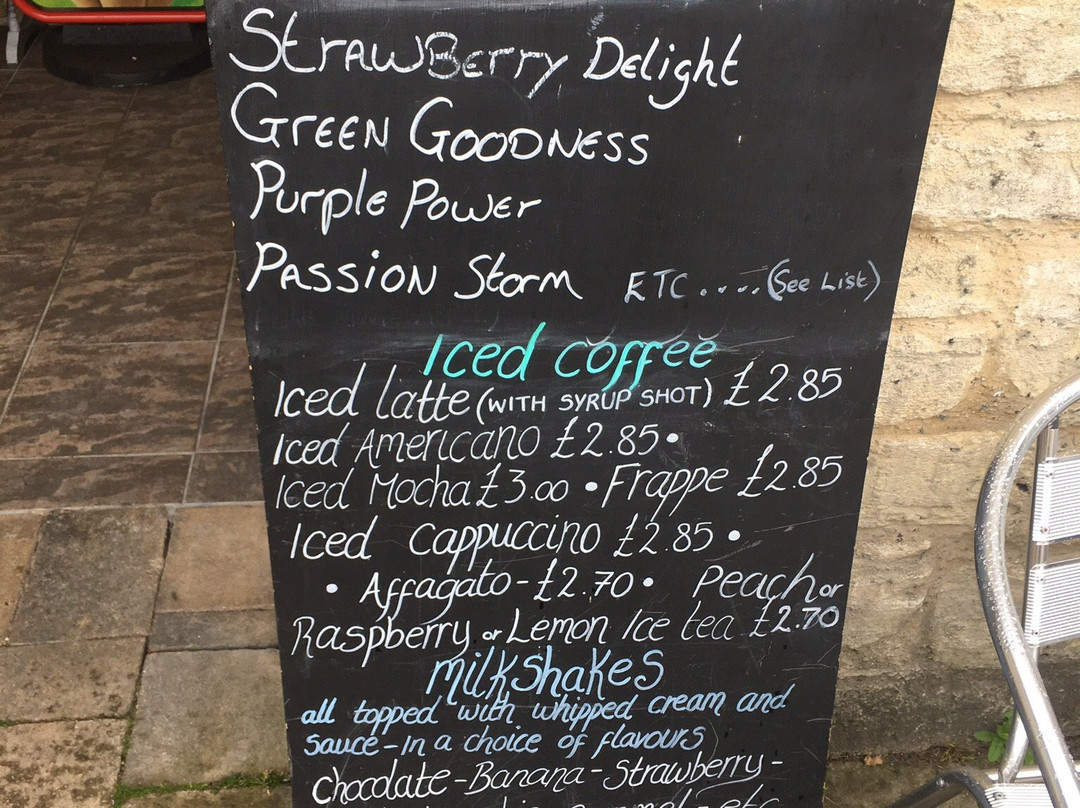 Strawberry Delight
Green Goodness
Purple Power
Passion Storm ETC.....(See List)
Iced coffee
Iced latte (WITH SYRUP SHOT) £2.85
Iced Americano £2.85•
Iced Mocha £3.00 •Frappe £2.85
Iced Cappuccino £2.85 •
• Affagato-£2.70• Peach or
Raspberry or Lemon Ice tea £2.70
Milkshakes
all topped with whipped cream and
sauce-in a choice of flavours
Chocolate-Banana-Strawberry-
etc